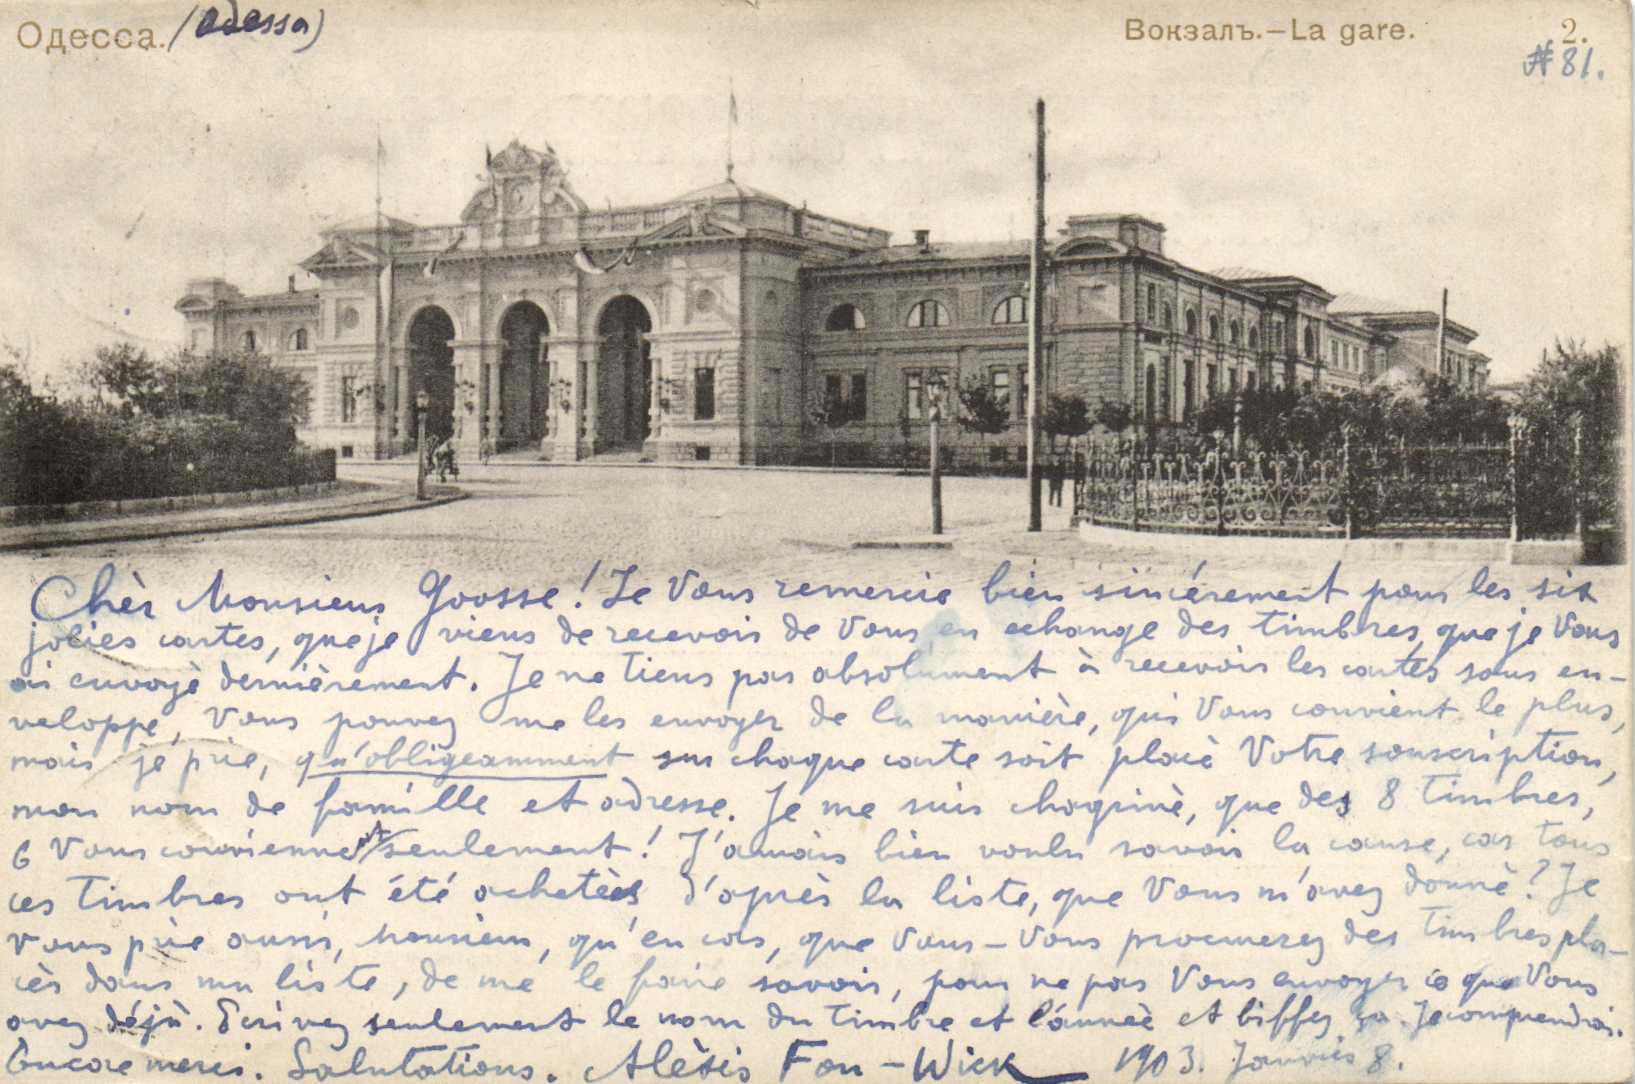 Одесса. (Odessa)
Вокзалъ.—La gare.
2.
#81.
Chèr Monsieur Goosse! Je Vous remercie bien sincérement pour les six
jolies cartes, que je viens de recevoir de Vous en echange des timbres, que je Vous
ai envoyè dernièrement. Je ne tiens pas absolument à recevoir les cartes sous en-
veloppe, Vous pouvez me les envoyer de la manière, qui Vous convient le plus,
mais je prie, qu'obligeamment sur chaque carte soit placè Votre souscription,
mon nom de famille et adresse. Je me suis chagrinè, que des 8 timbres,
6 Vous convienne seulement! J'aurais bien voulu savoir la cause, car tous
ces timbres ont été achetès d'après la liste, que Vous m'avez donnè? Je
Vous prie aussi, Monsieur, qu'en cas, que Vous-Vous procurerez des timbres pla-
cès dans ma liste, de me le faire savoir, pour ne pas Vous envoyer ce que Vous
avez déjà. Ecrivez seulement le nom du timbre et l'annèe et biffez ça. Je comprendrai.
Encore merci. Salutations. Alèxis Fon-Wick 1903. Janvier 8.